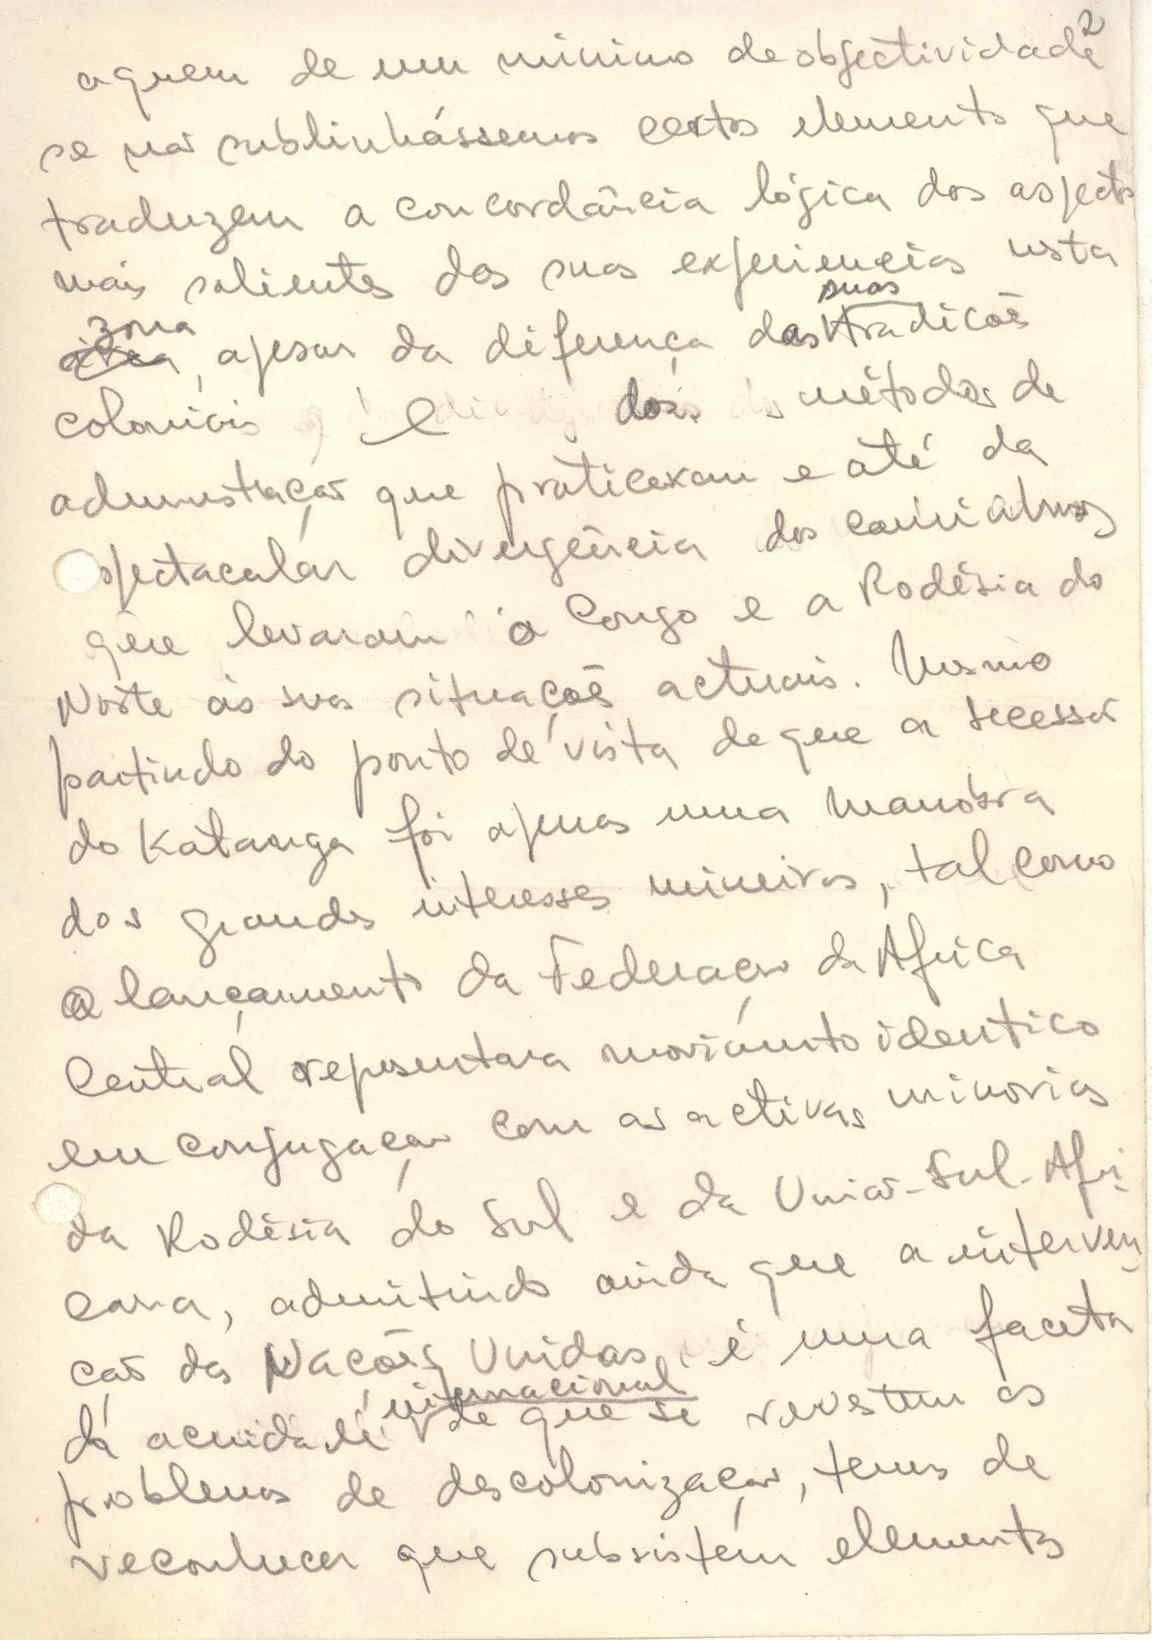 2
aquem de um mínimo de objectividade
se não sublinhássemos certos elementos que
traduzem a concordância lógica dos aspectos
mais salientes das suas experiencias nesta
zona, apesar da diferença das suas tradições
coloniais e dos métodos de
administração que praticaram e até da
espectacular divergência dos caminhos
que levaram o Congo e a Rodésia do
Norte às suas situações actuais. Mesmo
partindo do ponto de vista de que a secessão
do Katanga foi apenas uma manobra
dos grandes interesses mineiros, tal como
o lançamento da Federação da África
Central representara movimento identico
em conjugação com as activas minorias
da Rodésia do Sul e da União-Sul-Afri-
cana, admitindo ainda que a interven-
ção das Nações Unidas é uma faceta
da acuidade internacional de que se revestem os
problemas de descolonização, temos de
reconhecer que subsistem elementos